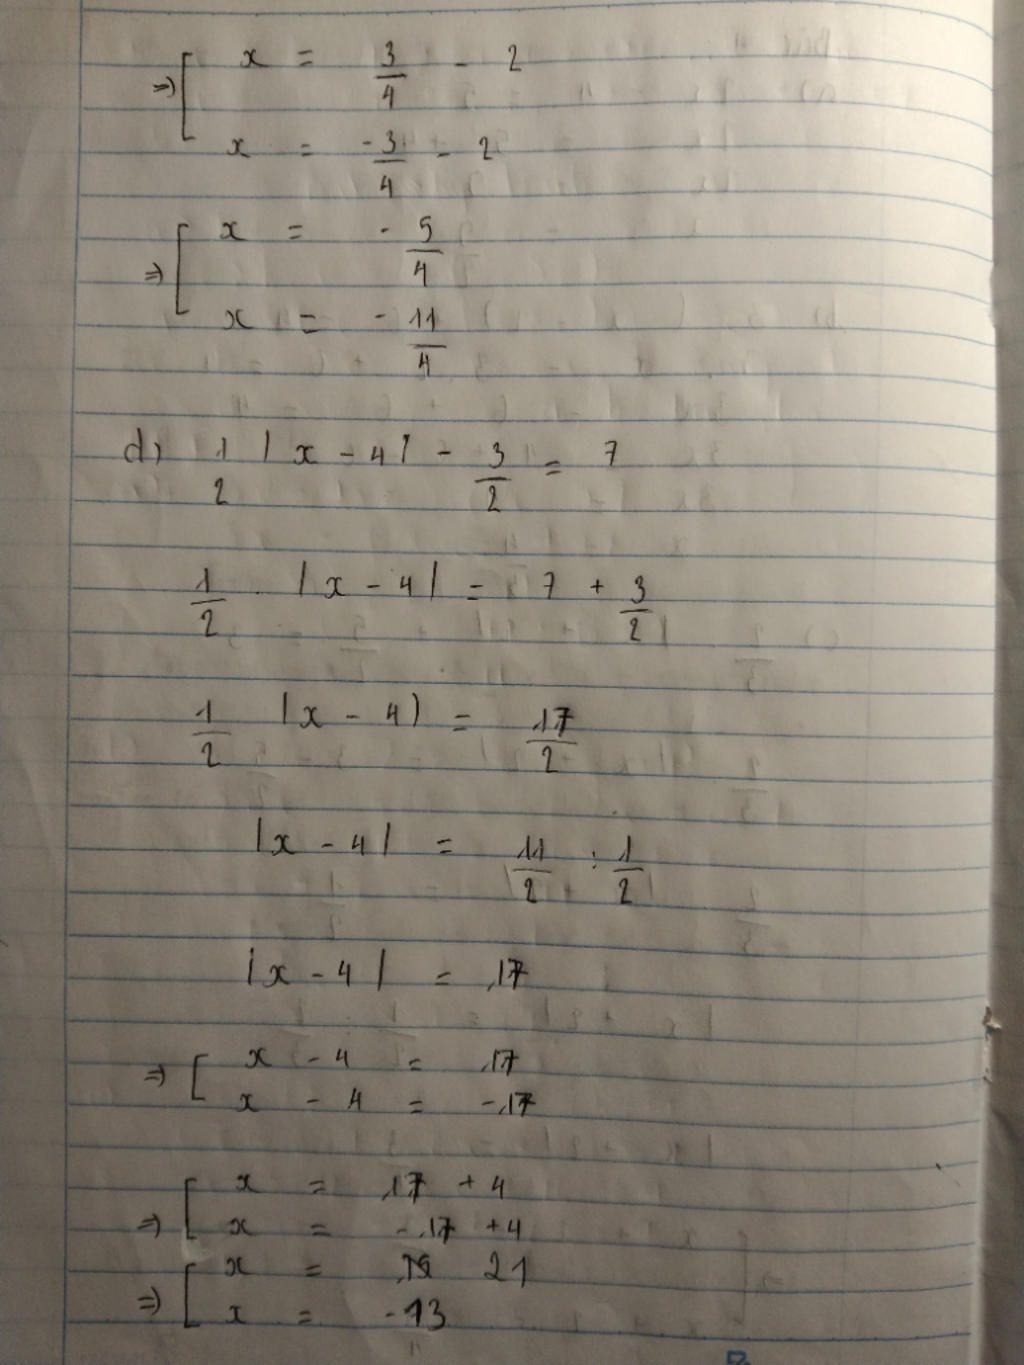 ⇒ [ x = 3/4 - 2
x = -3/4 - 2
⇒ [ x = - 5/4
x = - 11/4
d) 1/2 |x - 4| - 3/2 = 7
1/2 . |x - 4| = 7 + 3/2
1/2 |x - 4) = 17/2
|x - 4| = 11/2 : 1/2
|x - 4| = 17
⇒ [ x - 4 = 17
x - 4 = -17
⇒ [ x = 17 + 4
x = -17 + 4
⇒ [ x = 21
x = -13